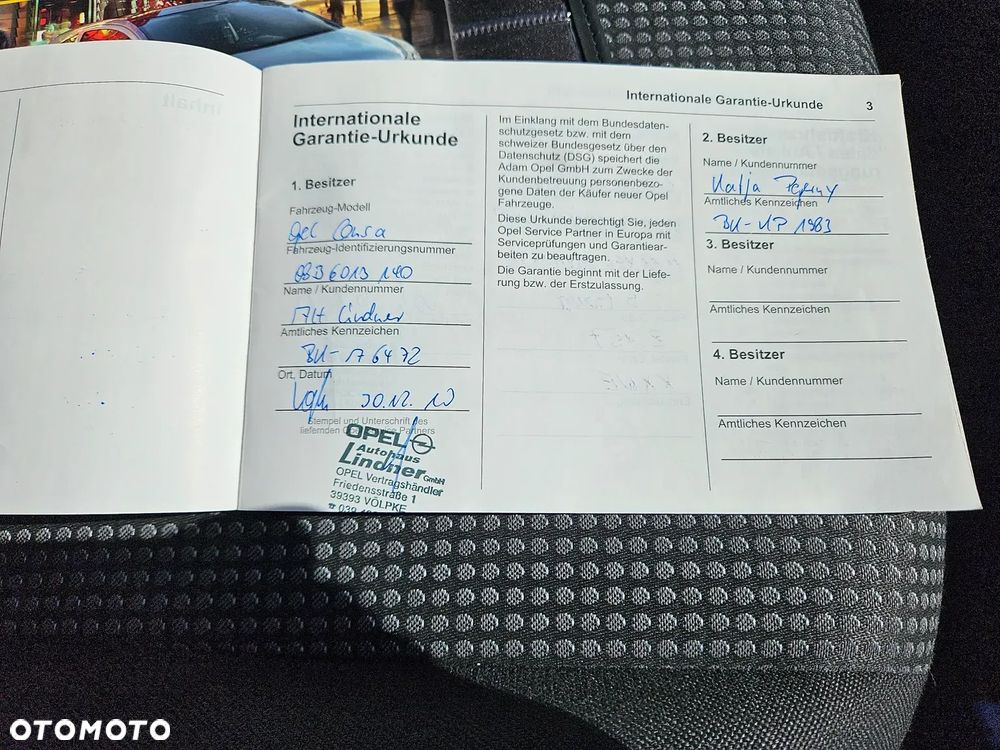 Internationale Garantie-Urkunde 3
Internationale
Garantie-Urkunde
1. Besitzer
Fahrzeug-Modell
Opel Corsa
Fahrzeug-Identifizierungsnummer
Name / Kundennummer
AH Lindner
Amtliches Kennzeichen
Ort, Datum
30.12. 10
Stempel und Unterschrift des
liefernden Opel Service Partners
OPEL
Autohaus
Lindner GmbH
OPEL Vertragshändler
Friedensstraße 1
39393 VÖLPKE
Im Einklang mit dem Bundesdaten-
schutzgesetz bzw. mit dem
schweizer Bundesgesetz über den
Datenschutz (DSG) speichert die
Adam Opel GmbH zum Zwecke der
Kundenbetreuung personenbezo-
gene Daten der Käufer neuer Opel
Fahrzeuge.
Diese Urkunde berechtigt Sie, jeden
Opel Service Partner in Europa mit
Serviceprüfungen und Garantiear-
beiten zu beauftragen.
Die Garantie beginnt mit der Liefe-
rung bzw. der Erstzulassung.
2. Besitzer
Name / Kundennummer
Katja
Amtliches Kennzeichen
3. Besitzer
Name / Kundennummer
Amtliches Kennzeichen
4. Besitzer
Name / Kundennummer
Amtliches Kennzeichen
OTOMOTO